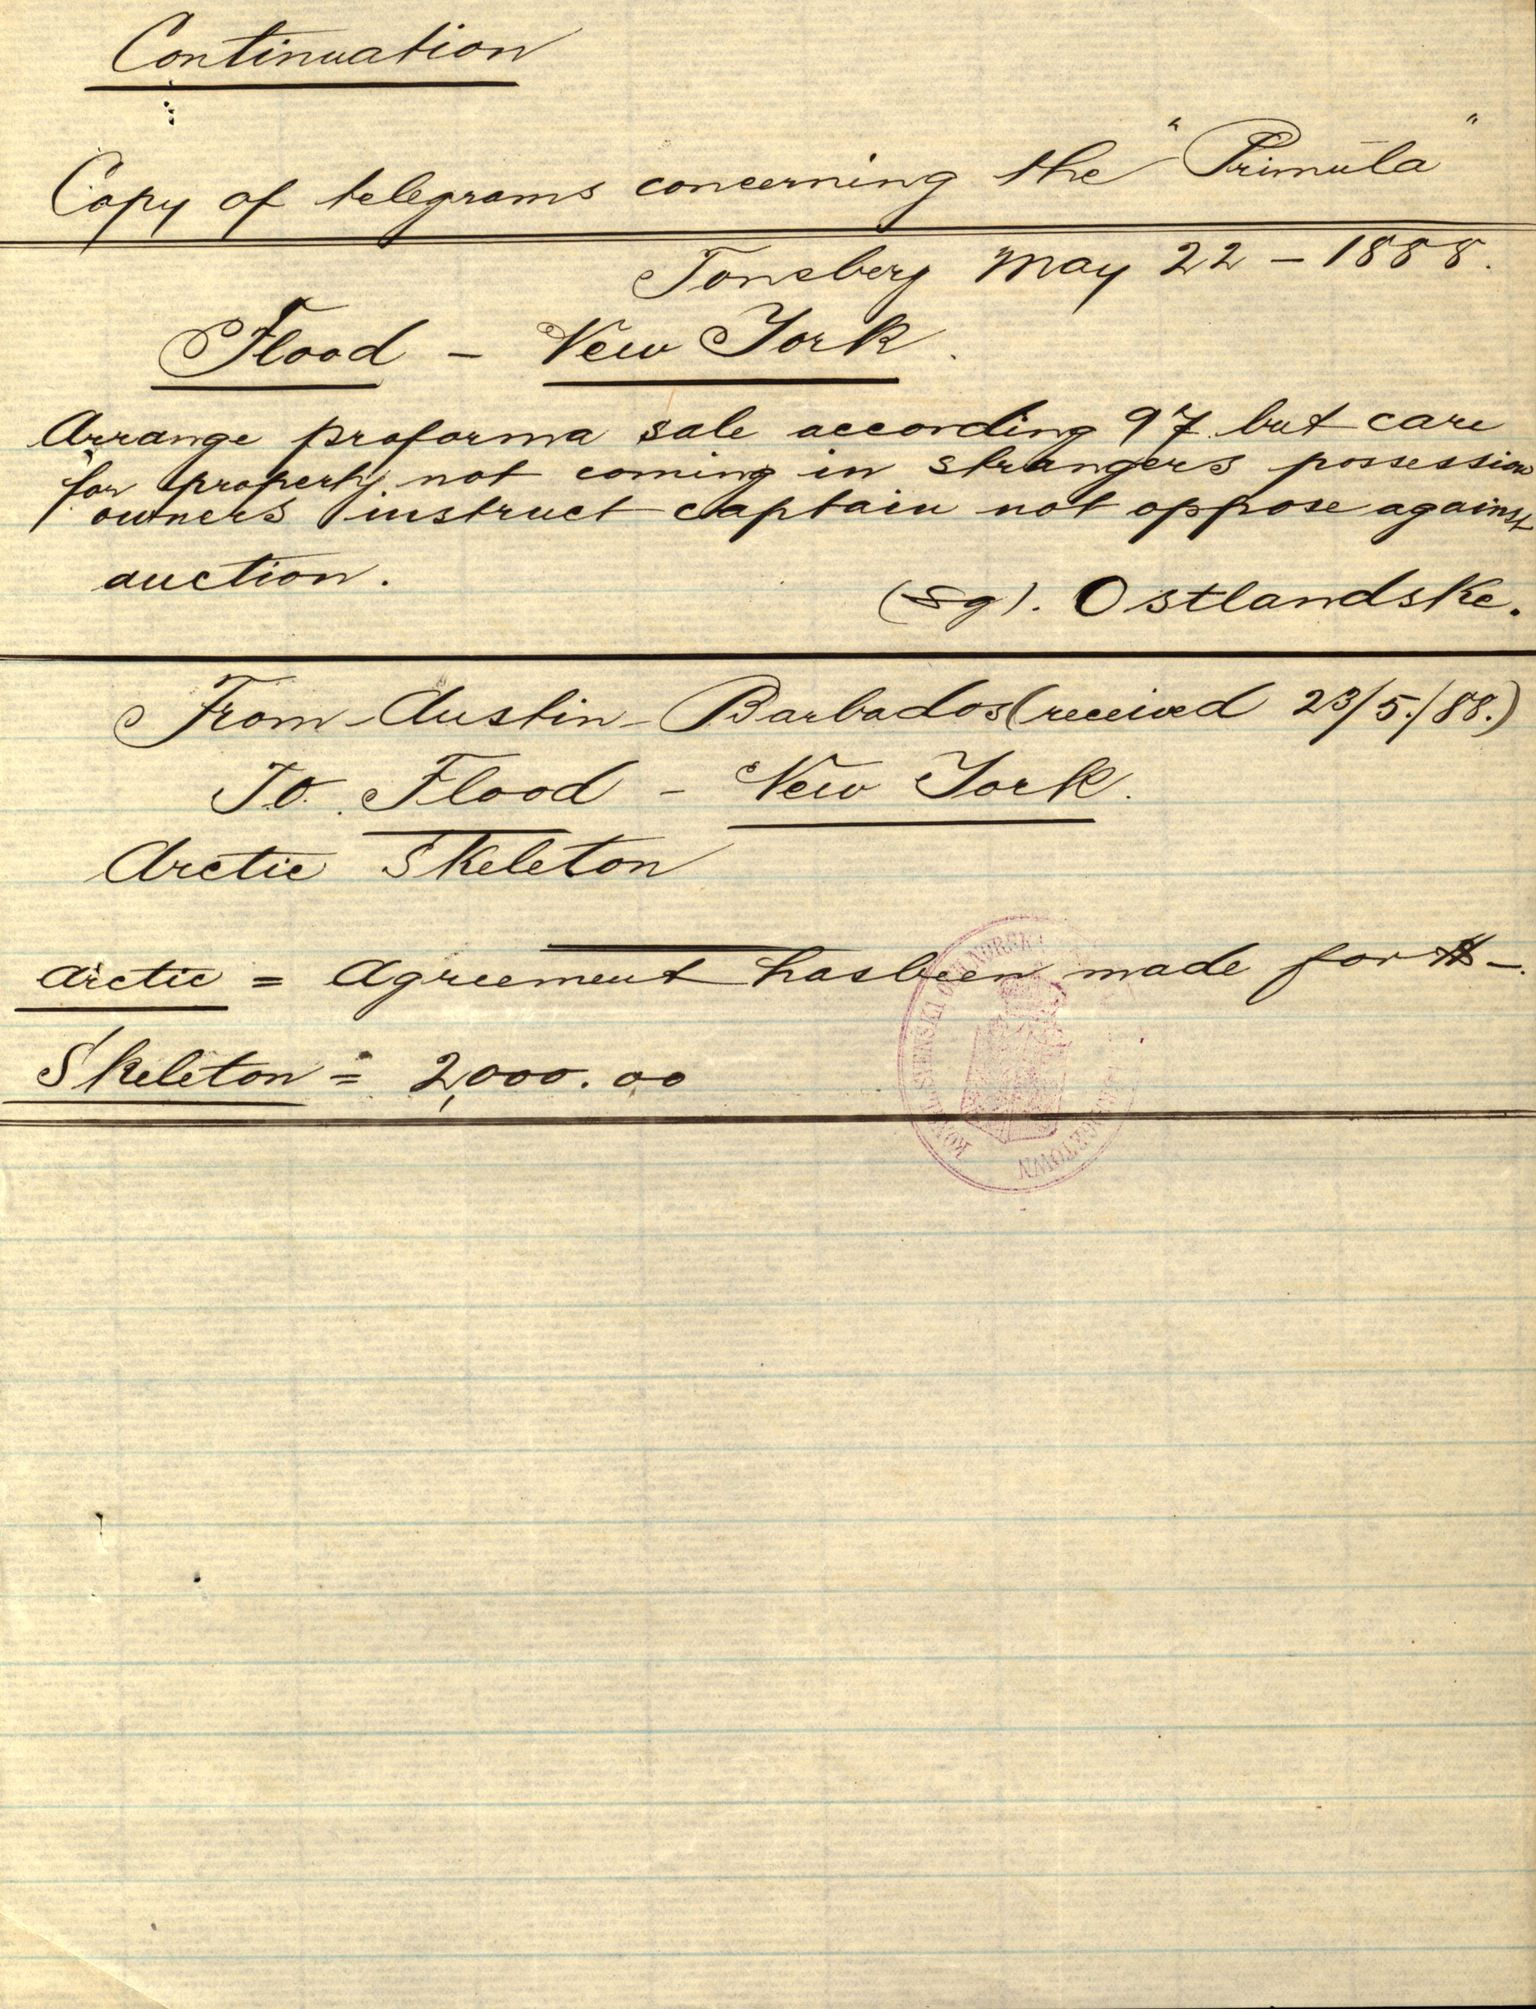 Continuation
Copy of telegrams concerning the "Primula"
Tonsberg May 22 – 1888.
Flood – New York.
Arrange proforma sale according 97 but care
for property not coming in strangers possession
owners instruct captain not oppose against
auction.
(Sg). Ostlandske.
From Austin – Barbados (received 23/5./88.)
To. Flood – New York.
Arctic Skeleton
Arctic = Agreement has been made for $ –.
Skeleton = 2,000.00
KONGL. SVENSKA OCH NORSKA
BRIDGETOWN